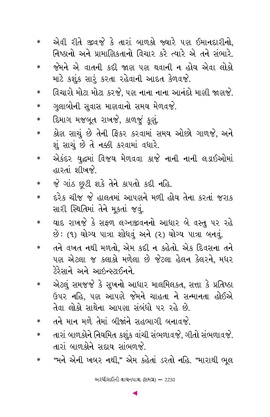 * એવી રીતે જીવજે કે તારાં બાળકો જ્યારે પણ ઈમાનદારીનો,
નિષ્ઠાનો અને પ્રામાણિકતાનો વિચાર કરે ત્યારે એ તને સંભારે.
* જેમને એ વાતની કદી જાણ પણ થવાની ન હોય એવા લોકો
માટે કશુંક સારું કરતા રહેવાની આદત કેળવજે.
* વિચારો મોટા મોટા કરજે, પણ નાના નાના આનંદો માણી જાણજે.
* ગુલાબોની સુવાસ માણવાનો સમય મેળવજે.
* દિમાગ મજબૂત રાખજે, કાળજું કૂણું.
* કોણ સાચું છે તેની ફિકર કરવામાં સમય ઓછો ગાળજે, અને
શું સાચું છે તે નક્કી કરવામાં વધારે.
* એકંદર યુદ્ધમાં વિજય મેળવવા કાજે નાની નાની લડાઈઓમાં
હારતાં શીખજે.
* જે ગાંઠ છૂટી શકે તેને કાપતો કદી નહિ.
* દરેક ચીજ જે હાલતમાં આપણને મળી હોય તેના કરતાં જરાક
સારી સ્થિતિમાં તેને મૂકતાં જવું.
* યાદ રાખજે કે સફળ લગ્નજીવનનો આધાર બે વસ્તુ પર રહે
છેઃ (૧) યોગ્ય પાત્ર શોધવું અને (૨) યોગ્ય પાત્ર બનવું.
* તને વખત નથી મળતો, એમ કદી ન કહેતો. એક દિવસના તને
પણ એટલા જ કલાકો મળેલા છે જેટલા હેલન કેલરને, મધર
ટેરેસાને અને આઇન્સ્ટાઈનને.
* એટલું સમજજે કે સુખનો આધાર માલમિલકત, સત્તા કે પ્રતિષ્ઠા
ઉપર નહિ, પણ આપણે જેમને ચાહતા ને સન્માનતા હોઈએ
તેવા લોકો સાથેના આપણા સંબંધો પર રહે છે.
* તને માન મળે તેમાં બીજાંને સહભાગી બનાવજે.
* તારાં બાળકોને નિયમિત કશુંક વાંચી સંભળાવજે, ગીતો સંભળાવજે.
તારાં બાળકોને સદાય સાંભળજે.
* “મને એની ખબર નથી,” એમ કહેતાં ડરતો નહિ. “મારાથી ભૂલ